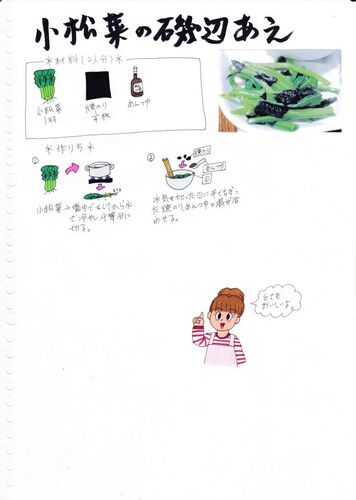 小松菜の磯辺あえ
*材料(2人分)*
小松菜
1羽
焼のり
めんつゆ
*作り方*
①
②
焼のり
めんつゆ
①
小松菜を塩ゆでしてから水
で冷やし、4等分に
切る。
水気を切った①に手でちぎっ
た焼のり、めんつゆと混ぜ合
わせる。
とても
おいしいよ。